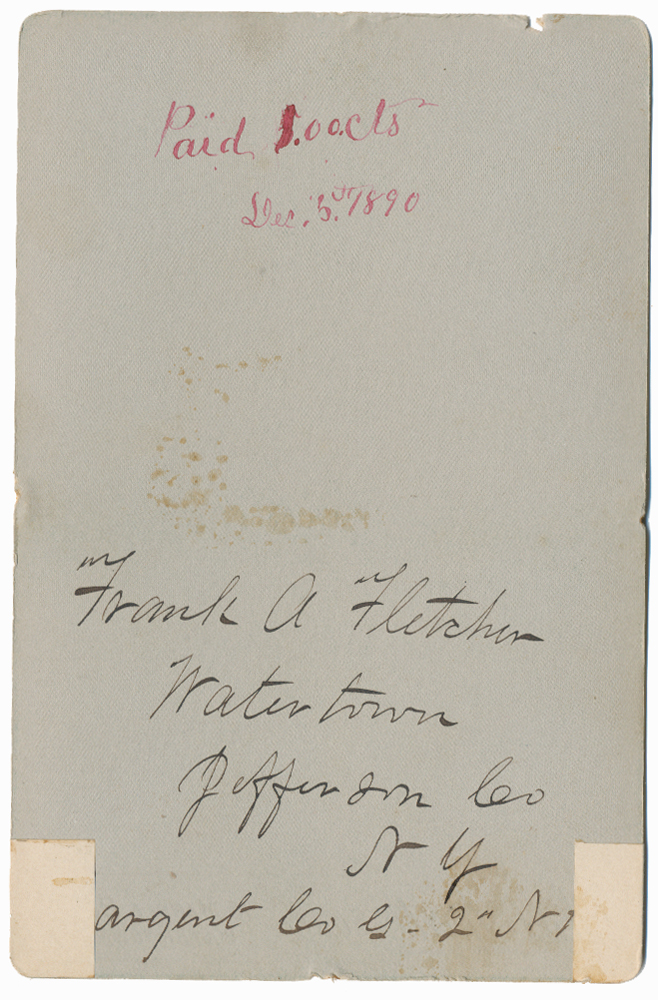 Paid 1.00cts
Dec. 5th 1890
Frank A Fletcher
Watertown
Jefferson Co
N Y
argent Co G - 2" N Y